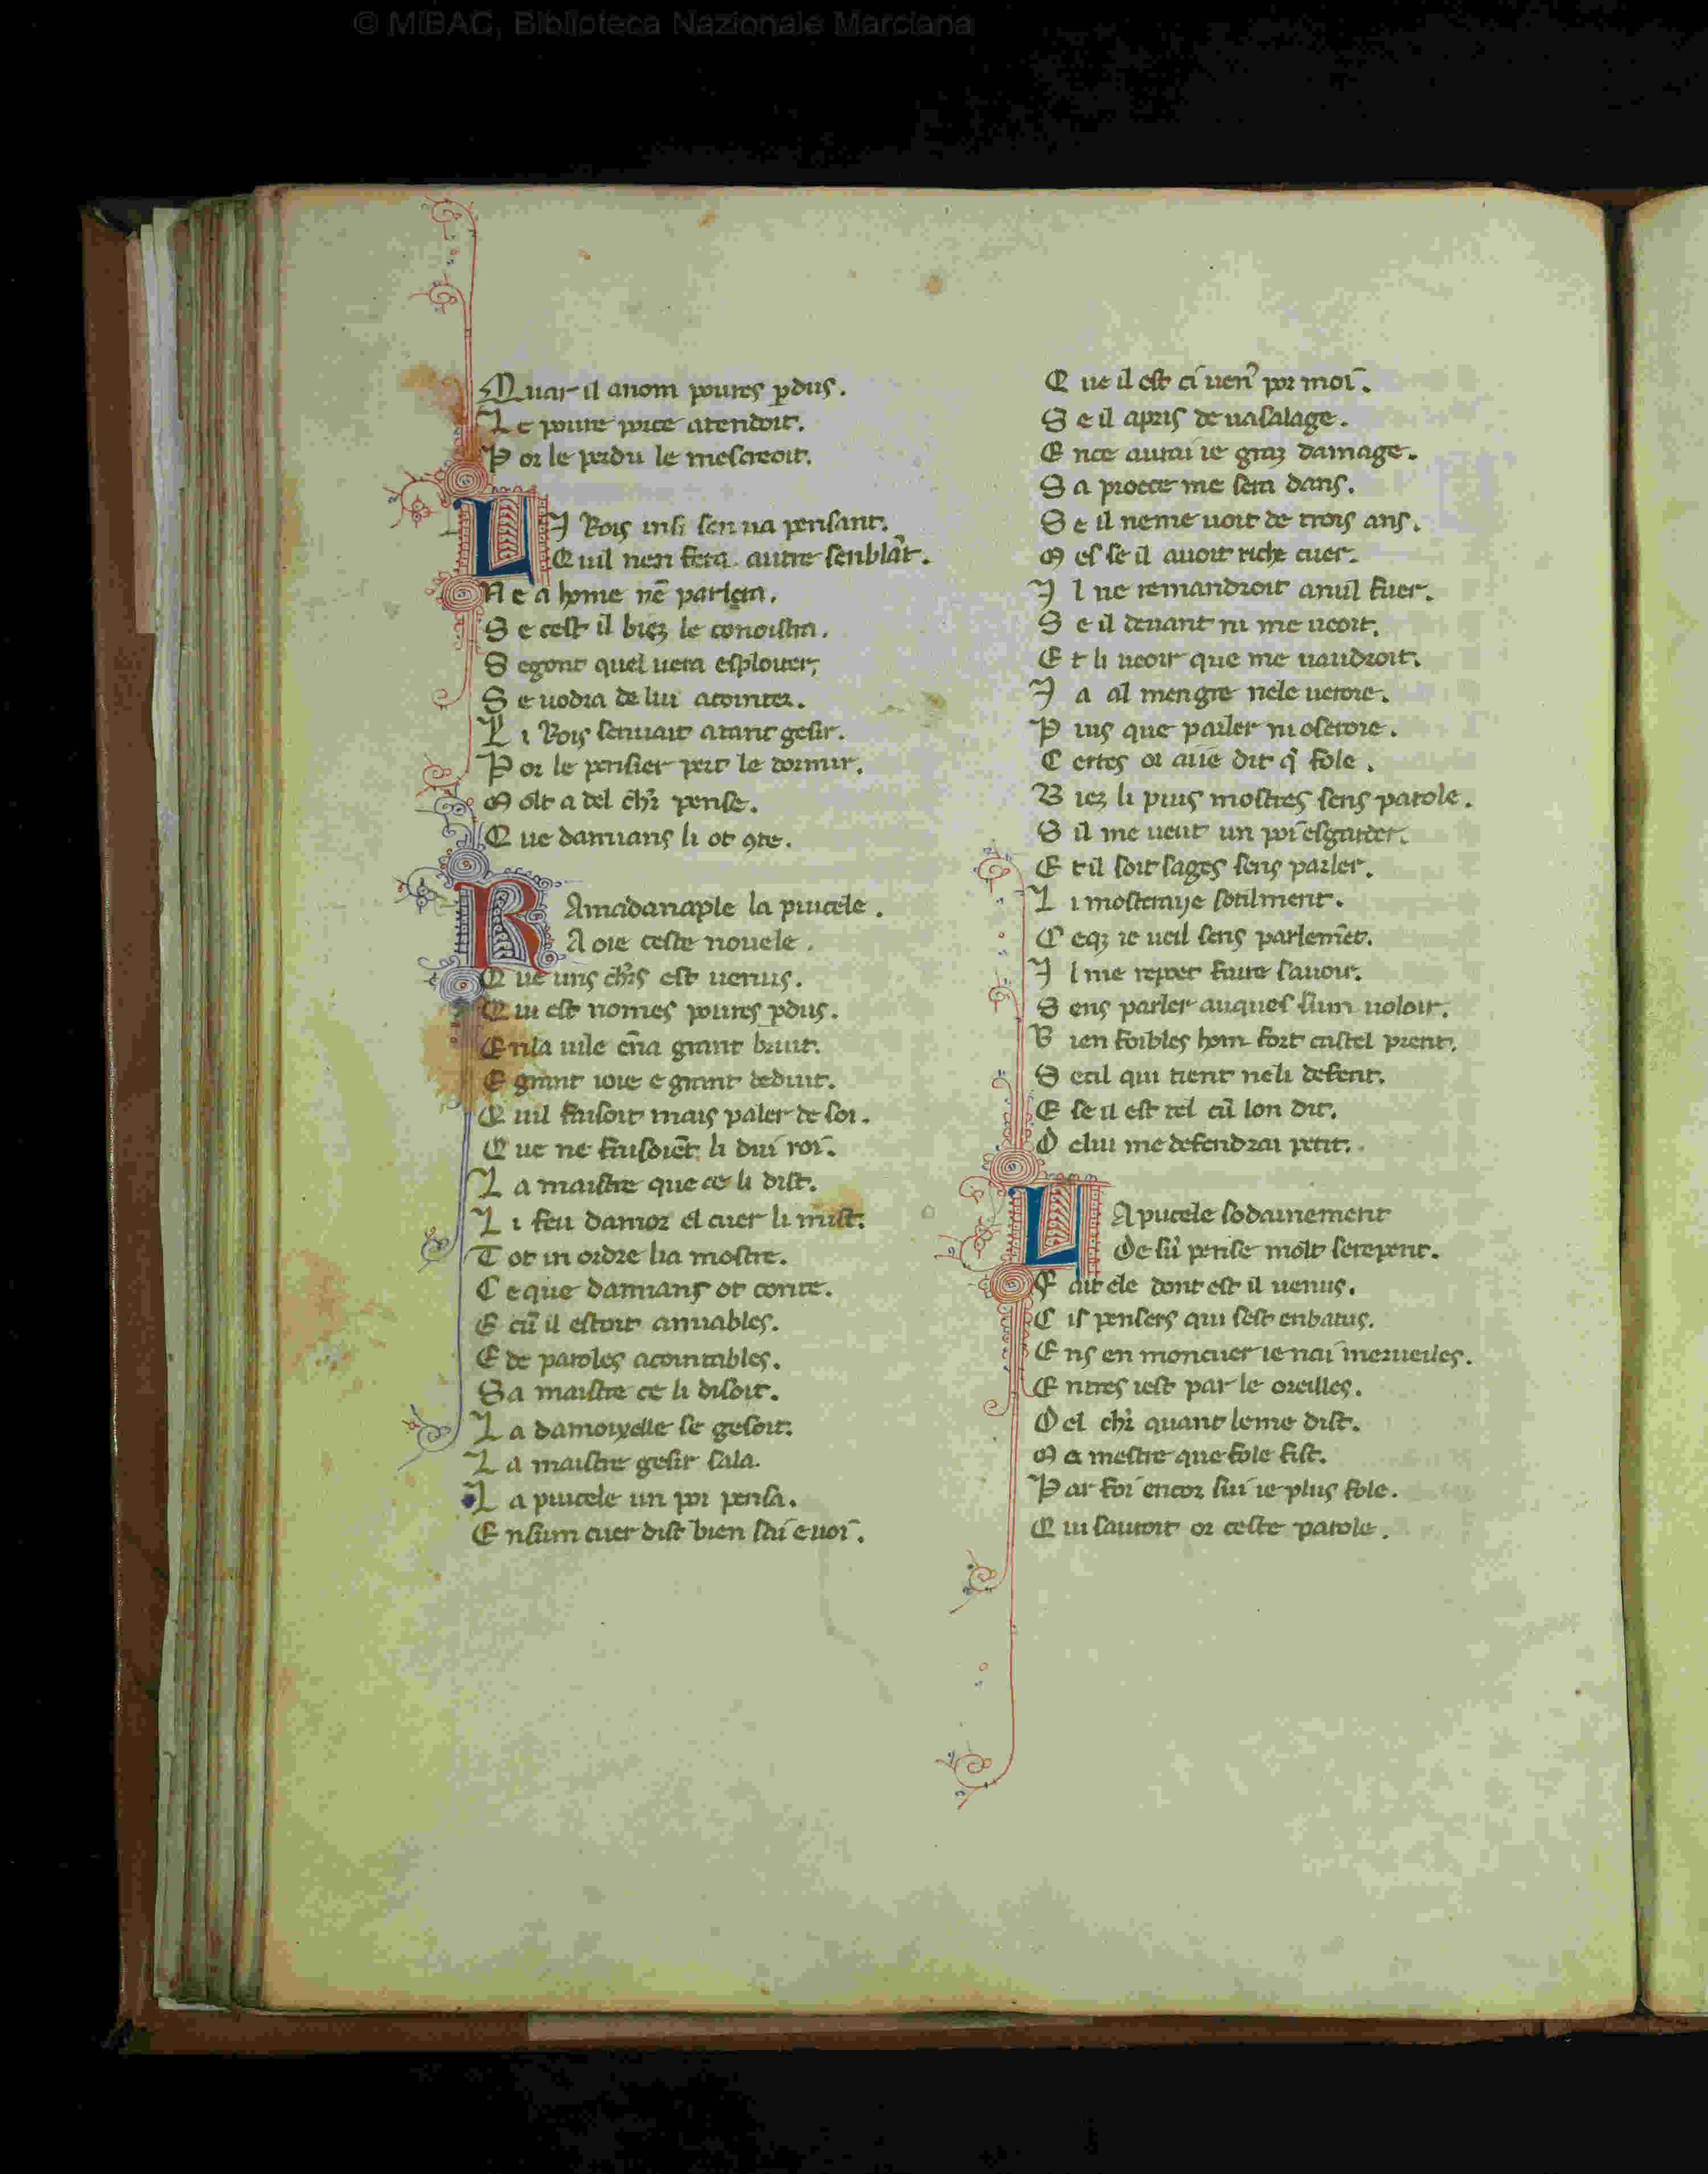 © MiBAC, Biblioteca Nazionale Marciana
Quar il anom poures ꝑdus.
Le poure poite atendoit.
Por le perdu le mescreoit.
LI Rois insi sen ua pensant.
Quil nen fera autre senblãt.
Ne a home nẽ parlera.
Se cest il bieꝫ le conoistra.
Segont quel uera esploiter,
Se uodra de lui acointer.
Li Rois senuait atant gesir.
Por le pensier pert le dormir.
Molt a del ch̃r pense.
Que damians li ot ꝯte.
RAmadanaple la pucele.
A oie ceste nouele.
Que uns ch̃rs est uenus.
Qui est nomes poures ꝑdus.
Enla uile en̄a grant bruit.
E grant ioie e grant deduit.
Quil faisoit mais paler de soi.
Que ne faisoiẽt li dui roi.
La maistre que ce li dist.
Li feu damor el cuer li mist.
Tot in ordre lia mostre.
Ceque damians ot conte.
E cũ il estoit amiables.
E de paroles acointables.
Sa maistre ce li disoit.
La damoixelle se gesoit.
La maistre gesir sala.
La pucele un poi pensa.
Ensum cuer dist bien sai e uoi.
Que il est ci uen᾿ por moi.
Se il apris de uasalage.
Ence aurai ie graꝫ damage.
Sa proece me sera dans.
Se il neme uoit de trois ans.
Mes se il auoit riche cuer.
Il ne remandroit anul fuer.
Se il deuant ni me ueoit.
Et li ueoir que me uaudroit.
Ia al mengre nele ueroie.
Puis que parler ni oseroie.
Certes or aiie dit q̃ fole.
Bieꝫ li puis mostres sens parole.
Sil me ueut un poi esgarder.
Et il soit sages sens parler.
Li mosteraije sotilment.
Ceqꝫ ie ueil sens parlemẽt.
Il me repoet faire sauoir.
Sens parler auques sum uoloir.
Bien foibles hom fort castel prent.
Secil qui tient neli defent.
E se il est tel cũ lon dit.
De lui me defendrai petit.
LA pucele sodainement
De lui pense molt serepent.
Fait ele dont est il uenus.
Cis pensers qui sest enbatus.
Ens en moncuer ie nai merueiles.
Entres iest par le oreilles.
Del ch̃r quant leme dist.
Ma mestre que fole fist.
Par foi encor sui ie plus fole.
Qui sauroit or ceste parole.